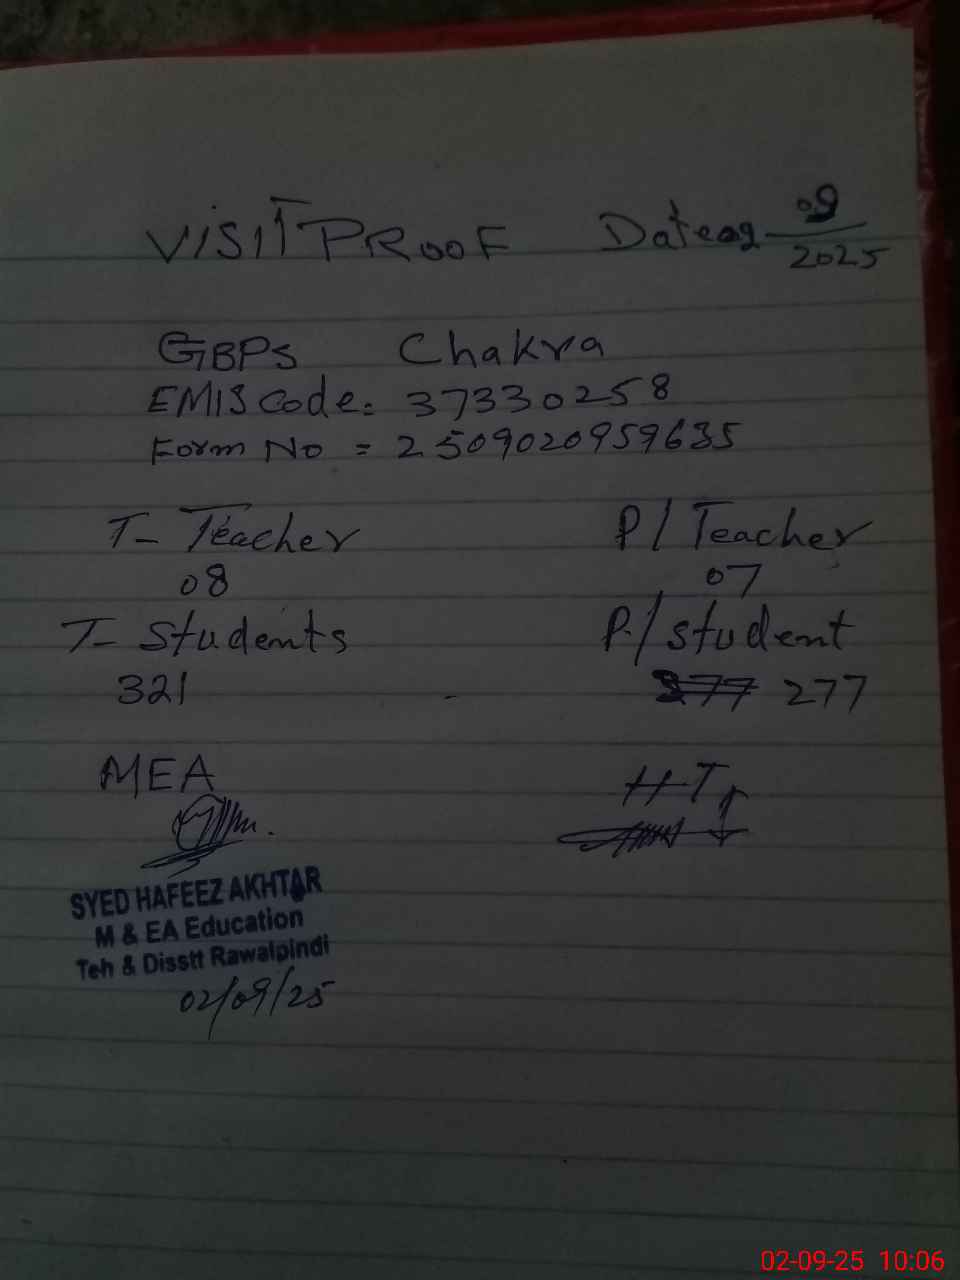 VISIT PROOF Date 02 09/2025
GBPS Chakra
EMIS Code: 37330258
Form No = 2509020959635
T- Teacher P/ Teacher
08 07
T- Students P/ student
321 377 277
MEA HT
SYED HAFEEZ AKHTAR
M & EA Education
Teh & Disstt Rawalpindi
02/09/25
02-09-25 10:06